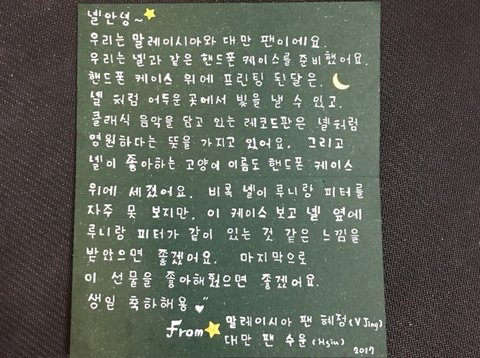 넬 안녕 ~
우리는 말레이시아와 대만 팬이에요.
우리는 넬과 같은 핸드폰 케이스를 준비했어요.
핸드폰 케이스 위에 프린팅 된 달은
넬처럼 어두운 곳에서 빛을 낼 수 있고,
클래식 음악을 담고 있는 레코드판은 넬처럼
영원하다는 뜻을 가지고 있어요. 그리고
넬이 좋아하는 고양이 이름도 핸드폰 케이스
위에 새겼어요. 비록 넬이 루니랑 피터를
자주 못 보지만, 이 케이스 보고 넬 옆에
루니랑 피터가 같이 있는 것 같은 느낌을
받았으면 좋겠어요. 마지막으로
이 선물을 좋아해줬으면 좋겠어요.
생일 축하해용
From 말레이시아 팬 혜정 (VJing)
대만 팬 수운 (Hsin)
2017